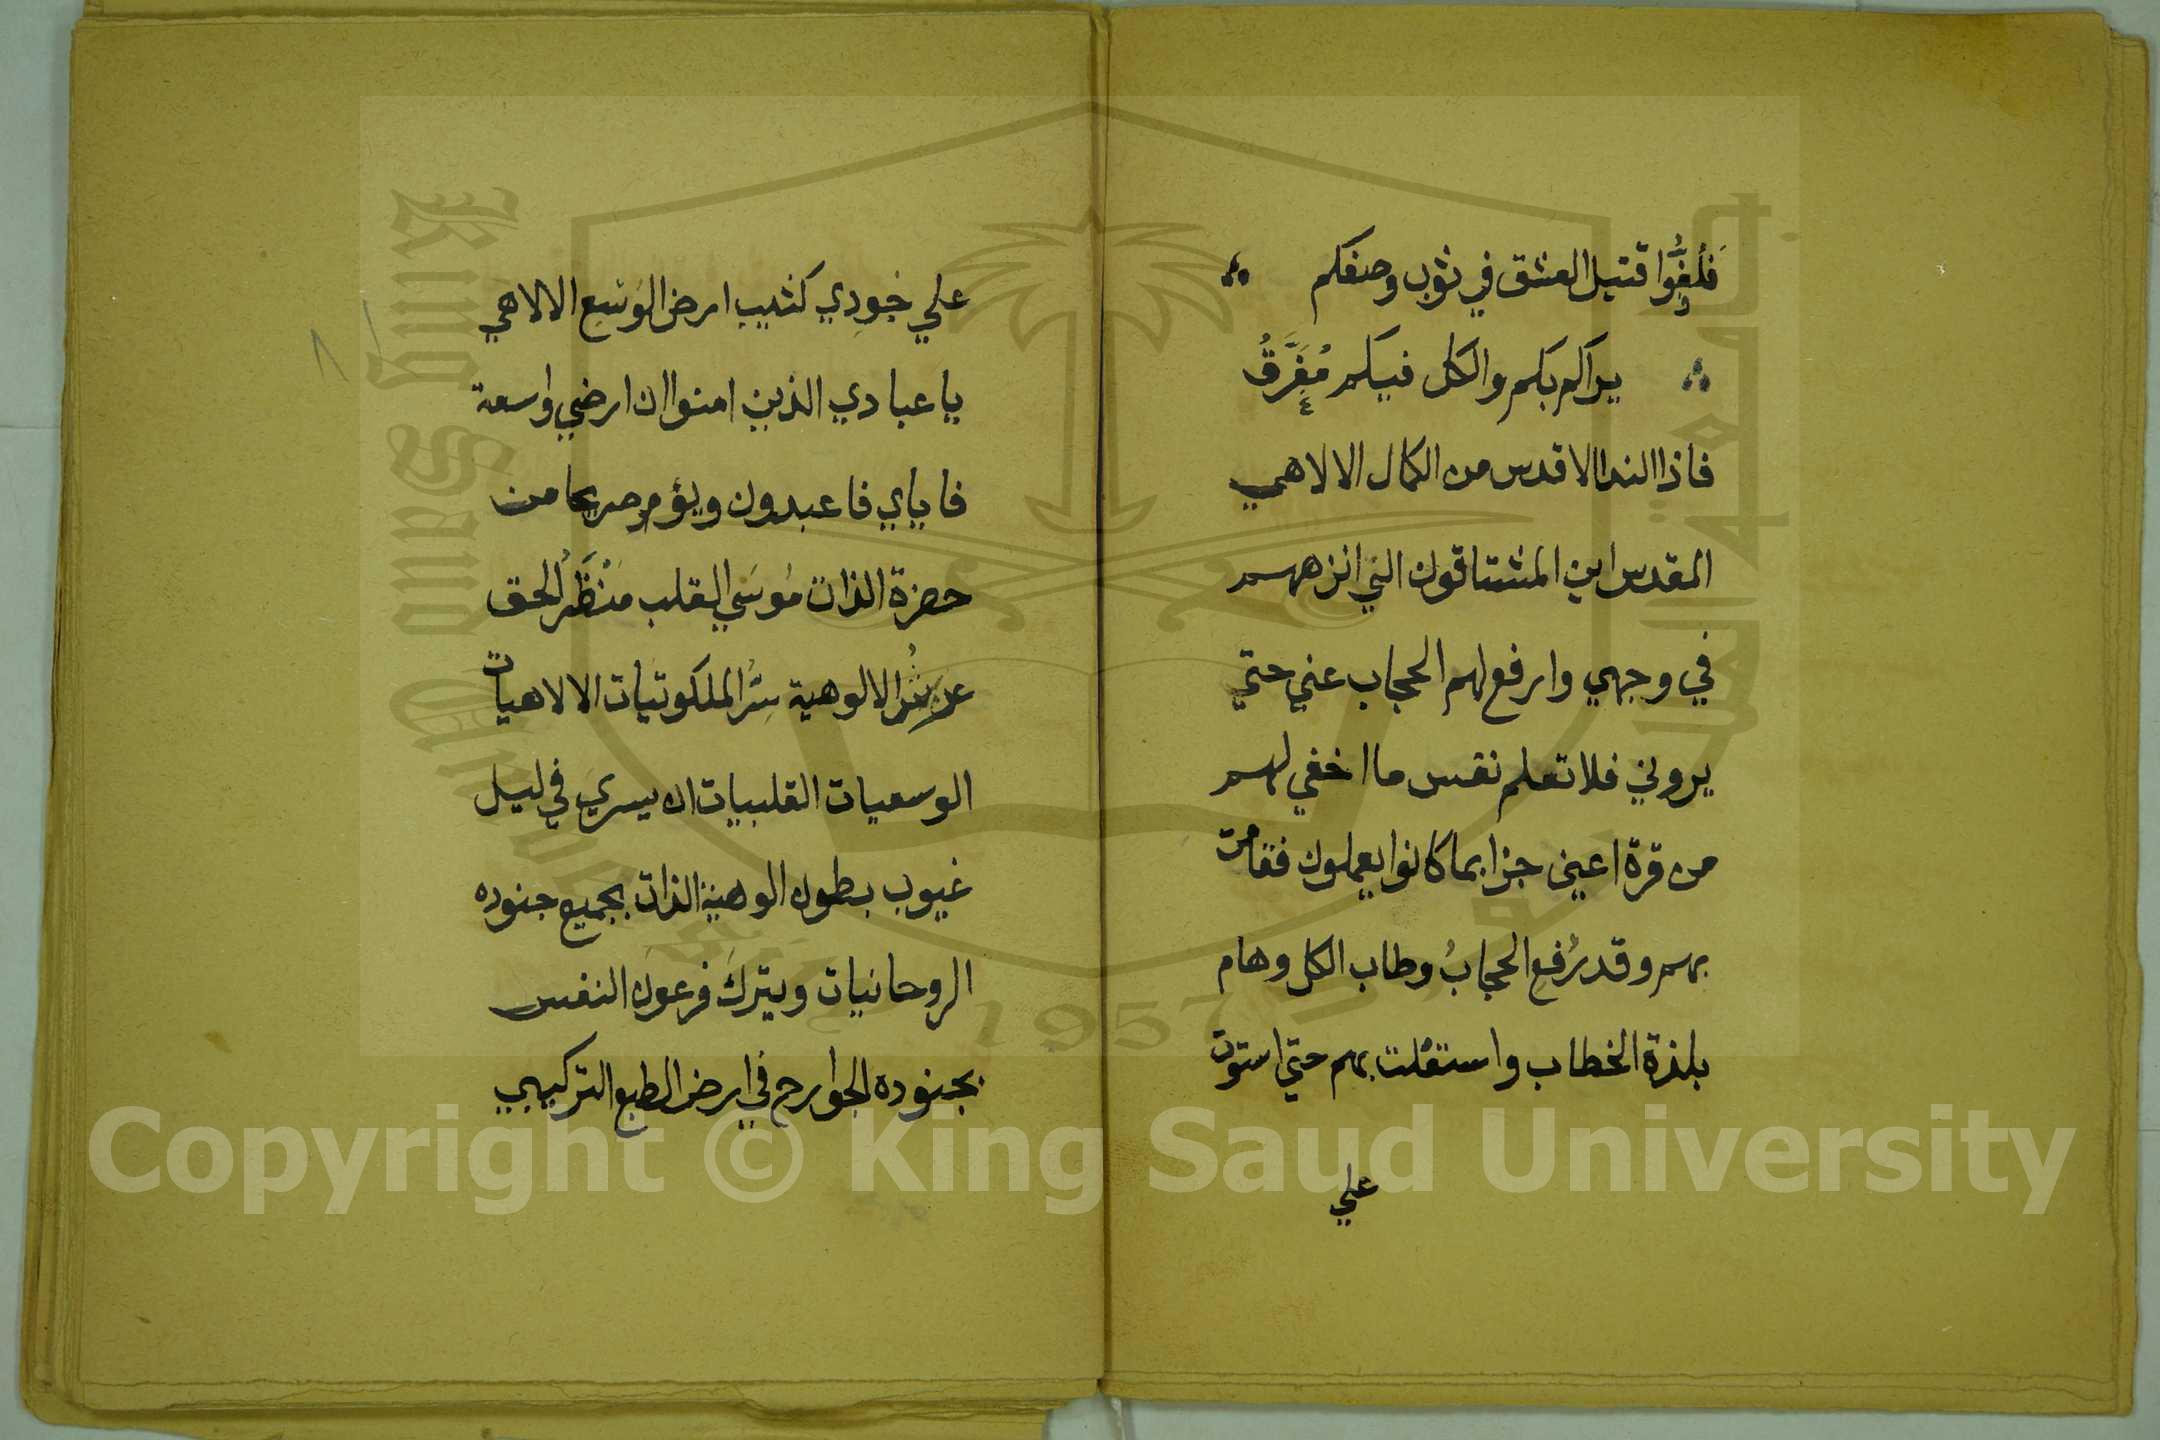 فَلُفُّوا قتيل العشق في ثوب وصفكم
يراكم بكم والكل فيكم مُفَرَّقُ
فاذا الندا الاقدس من الكمال الالاهي
المقدس اين المشتاقون التي انزههم
في وجهي وارفع لهم الحجاب عني حتي
يروني فلا تعلم نفس ما اخفي لهم
من قرة اعين جزا بما كانوا يعملون فقامت
بهم وقد رُفع الحجابُ وطاب الكل وهام
بلذة الخطاب واستقلت بهم حتي استوت
علي
علي جودي كثيب ارض الوَسَع الالاهي
يا عبادي الذين امنوا ان ارضي واسعة
فاياي فاعبدون ويؤمر صريحا من
حضرة الذات مُوسَي القلب مَنْظَرُ الحق
عرشُ الالوهية سِرُّ الملكوتيات الالاهيات
الوسعيات القلبيات ان يسري في ليل
غيوب بطون الوهية الذات بجميع جنوده
الروحانيات ويترك فرعون النفس
بجنوده الجوارح في ارض الطبع التركيبي
King Saud University
جامعة الملك سعود
1957
Copyright © King Saud University